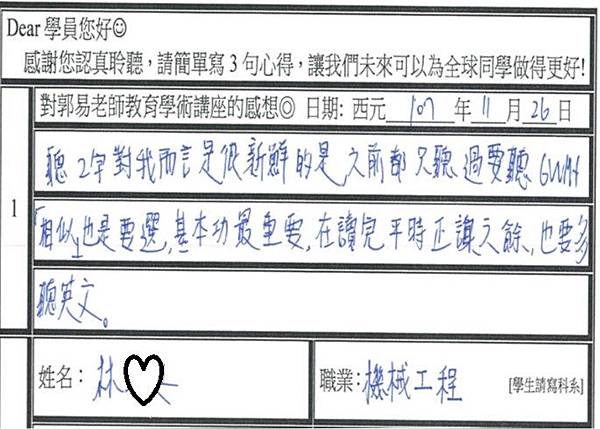 Dear 學員您好☺
感謝您認真聆聽，請簡單寫3句心得，讓我們未來可以為全球同學做得更好!
1
對郭易老師教育學術講座的感想◎ 日期: 西元 107 年 11 月 26 日
聽2字對我而言是很新鮮的是之前都只聽過要聽 GWMH
「相似」也是要選,基本功最重要,在讀完平時正課之餘,也要多
聽英文。
姓名： 林
職業：機械工程 [學生請寫科系]